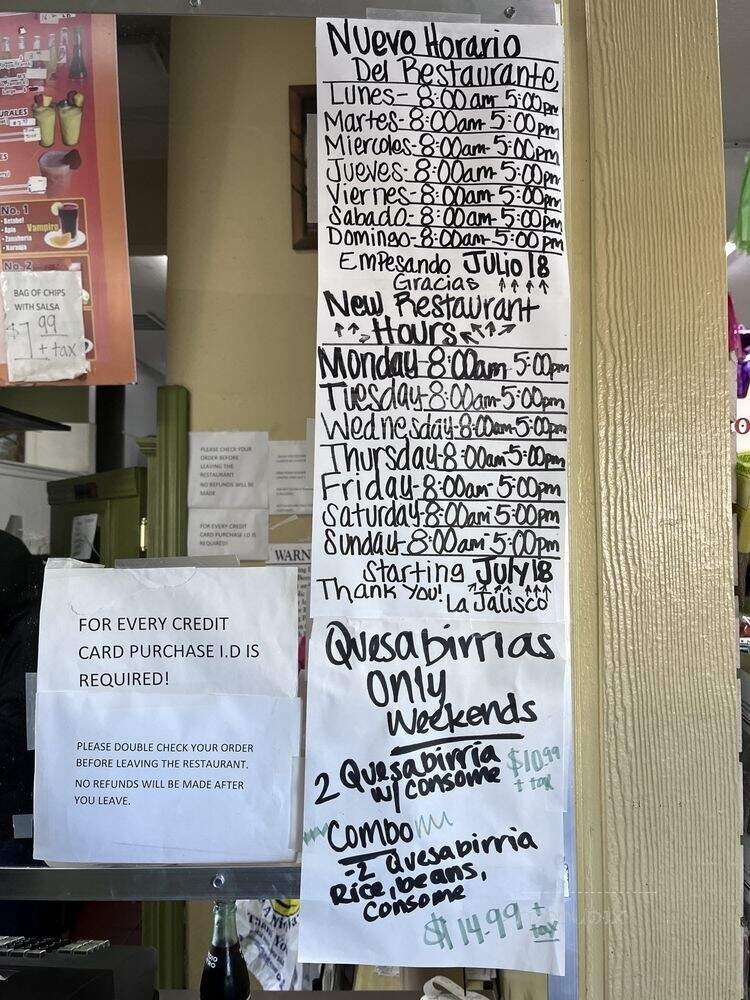 URALES
No. 1
• Betabel
• Apio
• Zanahoria
• Naranja
Vampiro
No. 2
BAG OF CHIPS
WITH SALSA
$7 99
+ tax
PLEASE CHECK YOUR
ORDER BEFORE
LEAVING THE
RESTAURANT
NO REFUNDS WILL BE
MADE
FOR EVERY CREDIT
CARD PURCHASE I.D IS
REQUIRED!
WARN
FOR EVERY CREDIT
CARD PURCHASE I.D IS
REQUIRED!
PLEASE DOUBLE CHECK YOUR ORDER
BEFORE LEAVING THE RESTAURANT.
NO REFUNDS WILL BE MADE AFTER
YOU LEAVE.
Nuevo Horario
Del Restaurante
Lunes- 8:00am-5:00pm
Martes-8:00am-5:00pm
Miercoles-8:00am-5:00pm
Jueves-8:00am-5:00pm
Viernes-8:00am-5:00pm
Sabado-8:00am-5:00pm
Domingo-8:00am-5:00pm
Empesando Julio 18
Gracias ↑↑↑↑
New Restaurant
Hours
Monday-8:00am-5:00pm
Tuesday-8:00am-5:00pm
Wednesday-8:00am-5:00pm
Thursday-8:00am-5:00pm
Friday-8:00am-5:00pm
Saturday-8:00am-5:00pm
Sunday-8:00am-5:00pm
Starting July 18
Thank You! La Jalisco
Quesabirrias
Only
Weekends
2 Quesabirria $10.99
w/ consome + tax
Combo
-2 Quesabirria
Rice, beans,
Consome
$14.99 + tax